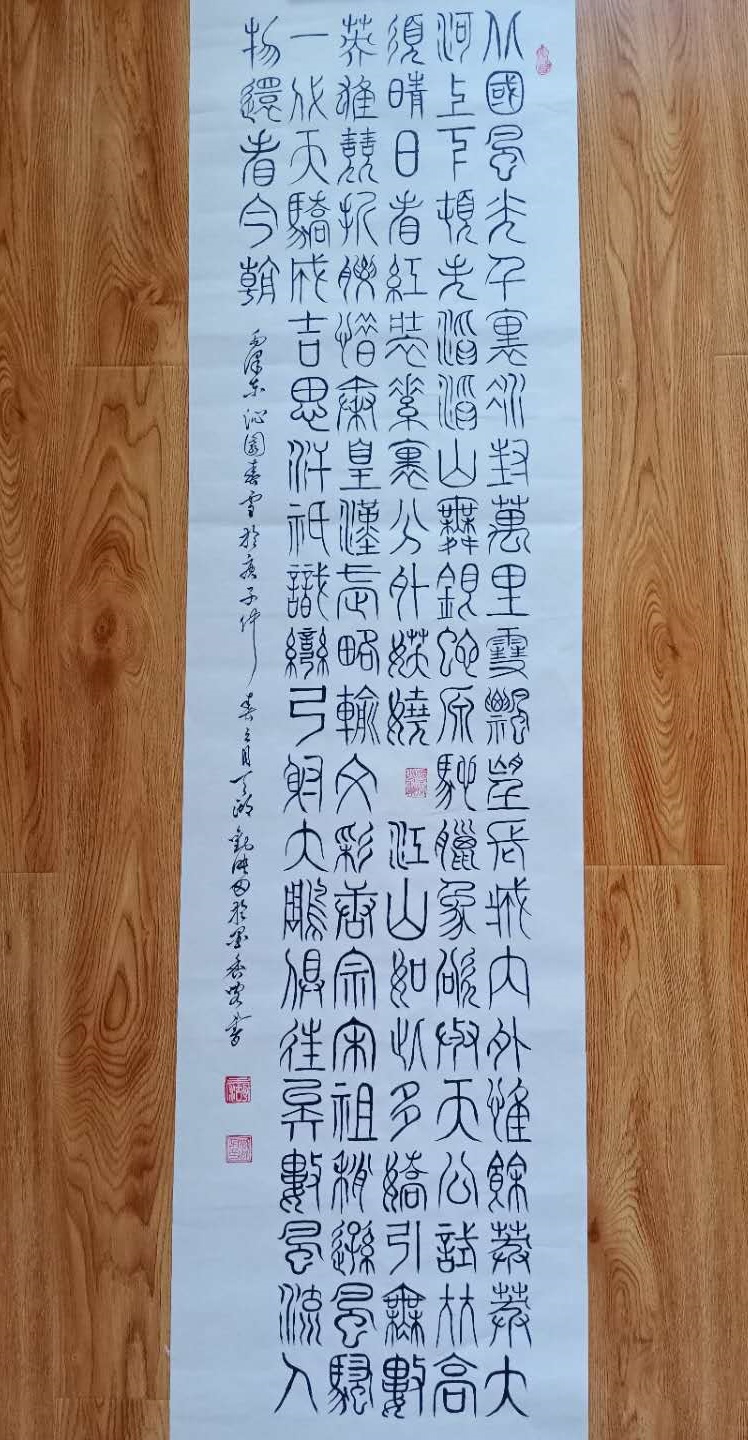 北國風光千裏冰封萬里雪飄望長城内外惟餘莽莽大
河上下頓失滔滔山舞銀蛇原馳臘象欲與天公試比高
須晴日看紅裝素裹分外妖嬈江山如此多嬌引無數
英雄競折腰惜秦皇漢武略輸文彩唐宗宋祖稍遜風騷
一代天驕成吉思汗祇識彎弓射大雕俱往矣數風流人
物還看今朝
毛澤東沁園春雪於庚子仲春之月於墨香書